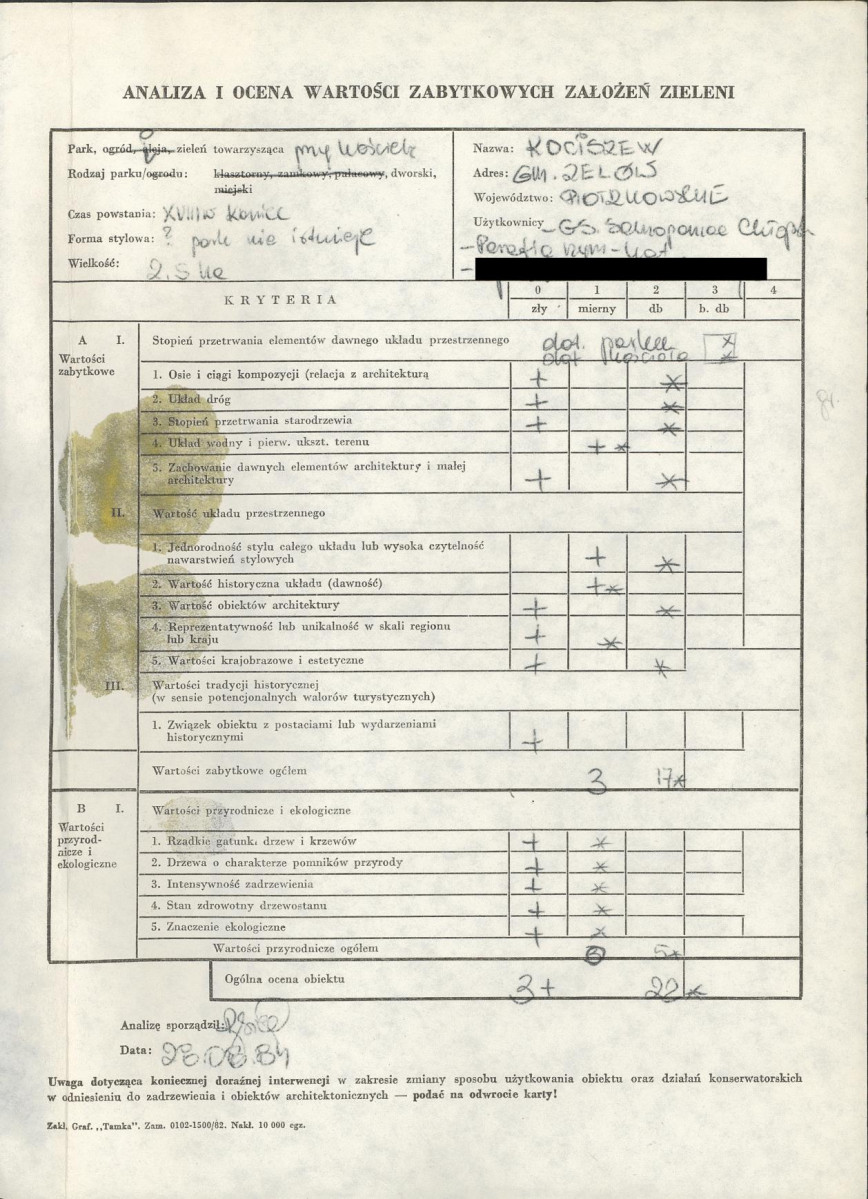 ANALIZA I OCENA WARTOŚCI ZABYTKOWYCH ZAŁOŻEŃ ZIELENI
Park, ogród, aleja, zieleń towarzysząca przy kościele
Rodzaj parku/ogrodu: klasztorny, zamkowy, pałacowy, dworski,
miejski
Czas powstania: XVIIIw koniec
Forma stylowa: ? park nie istnieje
Wielkość: 2.5 ha
Nazwa: KOCISZEW
Adres: GM. ZELÓW
Województwo: PIOTRKOWSKIE
Użytkownicy - GS. Samopomoc Chłopska
- Parafia rzym-kat.
-
KRYTERIA
0 1 2 3 4
zły mierny db b. db
A I. Stopień przetrwania elementów dawnego układu przestrzennego dot. parku +
dot kościoła *
Wartości
zabytkowe
1. Osie i ciągi kompozycji (relacja z architekturą + *
2. Układ dróg + *
3. Stopień przetrwania starodrzewia + *
4. Układ wodny i pierw. ukszt. terenu + *
5. Zachowanie dawnych elementów architektury i małej
architektury + *
II. Wartość układu przestrzennego
1. Jednorodność stylu całego układu lub wysoka czytelność
nawarstwień stylowych + *
2. Wartość historyczna układu (dawność) + *
3. Wartość obiektów architektury + *
4. Reprezentatywność lub unikalność w skali regionu
lub kraju + *
5. Wartości krajobrazowe i estetyczne + *
III. Wartości tradycji historycznej
(w sensie potencjonalnych walorów turystycznych)
1. Związek obiektu z postaciami lub wydarzeniami
historycznymi +
Wartości zabytkowe ogółem 3 17*
B I. Wartości przyrodnicze i ekologiczne
Wartości
przyrod-
nicze i
ekologiczne
1. Rzadkie gatunki drzew i krzewów + *
2. Drzewa o charakterze pomników przyrody + *
3. Intensywność zadrzewienia + *
4. Stan zdrowotny drzewostanu + *
5. Znaczenie ekologiczne + *
Wartości przyrodnicze ogółem 0 5*
Ogólna ocena obiektu 3+ 22*
Analizę sporządził:
Data: 28.08.84
Uwaga dotycząca koniecznej doraźnej interwencji w zakresie zmiany sposobu użytkowania obiektu oraz działań konserwatorskich
w odniesieniu do zadrzewienia i obiektów architektonicznych — podać na odwrocie karty!
Zakł. Graf. ,,Tamka". Zam. 0102-1500/82. Nakł. 10 000 egz.